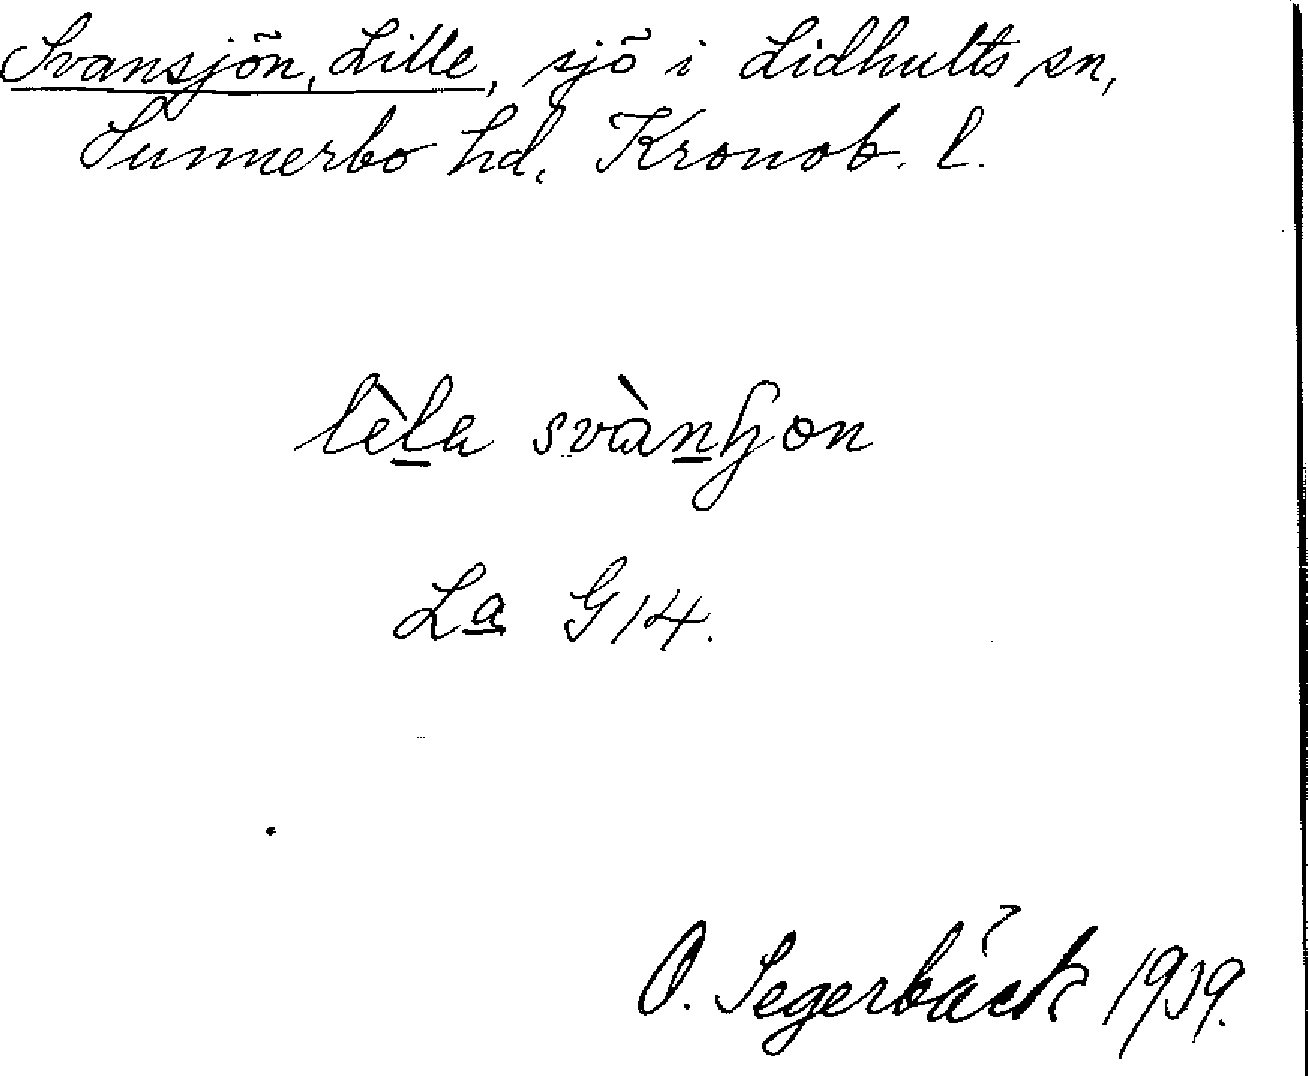 Svansjön, Lille, sjö i Lidhults sn,
Sunnerbo hd. Kronob. l.
lèla svànɧon
La G 14.
O. Segerbäck 1939.